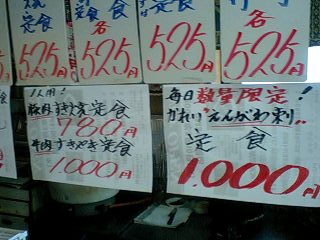 定食
各
525円
定食
各
525円
定食
525円
各
525円
1人用!
豚肉すき焼定食
780円
牛肉すきやき定食
1.000円
毎日数量限定!
かれいえんがわ刺し
定食
1.000円